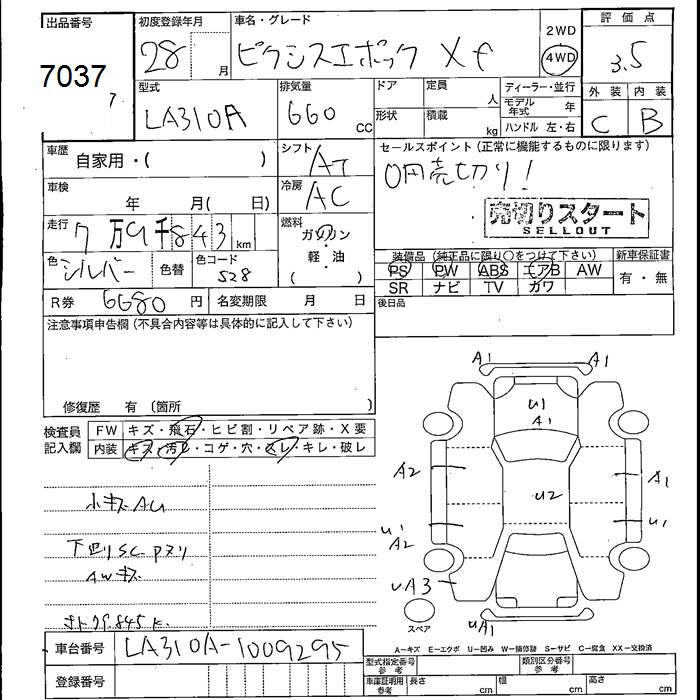 出品番号
7037
7
初度登録年月
28 月
車名・グレード
ピクシスエポック Xf
2WD
4WD
評価点
3.5
外装 内装
C B
型式
LA310A
排気量
660 CC
ドア 定員
人
形状 積載
kg
ディーラー・並行
モデル年式 年
ハンドル 左・右
車歴
自家用・( )
シフト
AT
車検
年 月( 日)
冷房
AC
セールスポイント(正常に機能するものに限ります)
0円売切り!
売切りスタート
SELLOUT
走行
7万9千843 km
燃料
ガソリン
・
軽・油
( )
色
シルバー
色替
色コード
S28
装備品(純正品に限り○をつけて下さい)
PS PW ABS エアB AW
SR ナビ TV カワ
新車保証書
有・無
R券
6680 円
名変期限 月 日
後日品
注意事項申告欄(不具合内容等は具体的に記入して下さい)
修復歴 有 〔箇所 〕
検査員
記入欄
FW キズ・飛石・ヒビ割・リペア跡・X要
内装 キズ・汚レ・コゲ・穴・スレ・キレ・破レ
小キズAU
下廻りSC Pヌリ
AWキズ
A1 A1
U1
A1
A2
U2
A1
U1
A2
U1
UA3
UA1
スペア
A-キズ E-エクボ U-凹み W-補修跡 S-サビ C-腐食 XX-交換済
車台番号
LA310A-1009295
登録番号
型式指定番号
参考
類別区分番号
参考
車庫証明用
参考
長さ cm 幅 cm 高さ cm